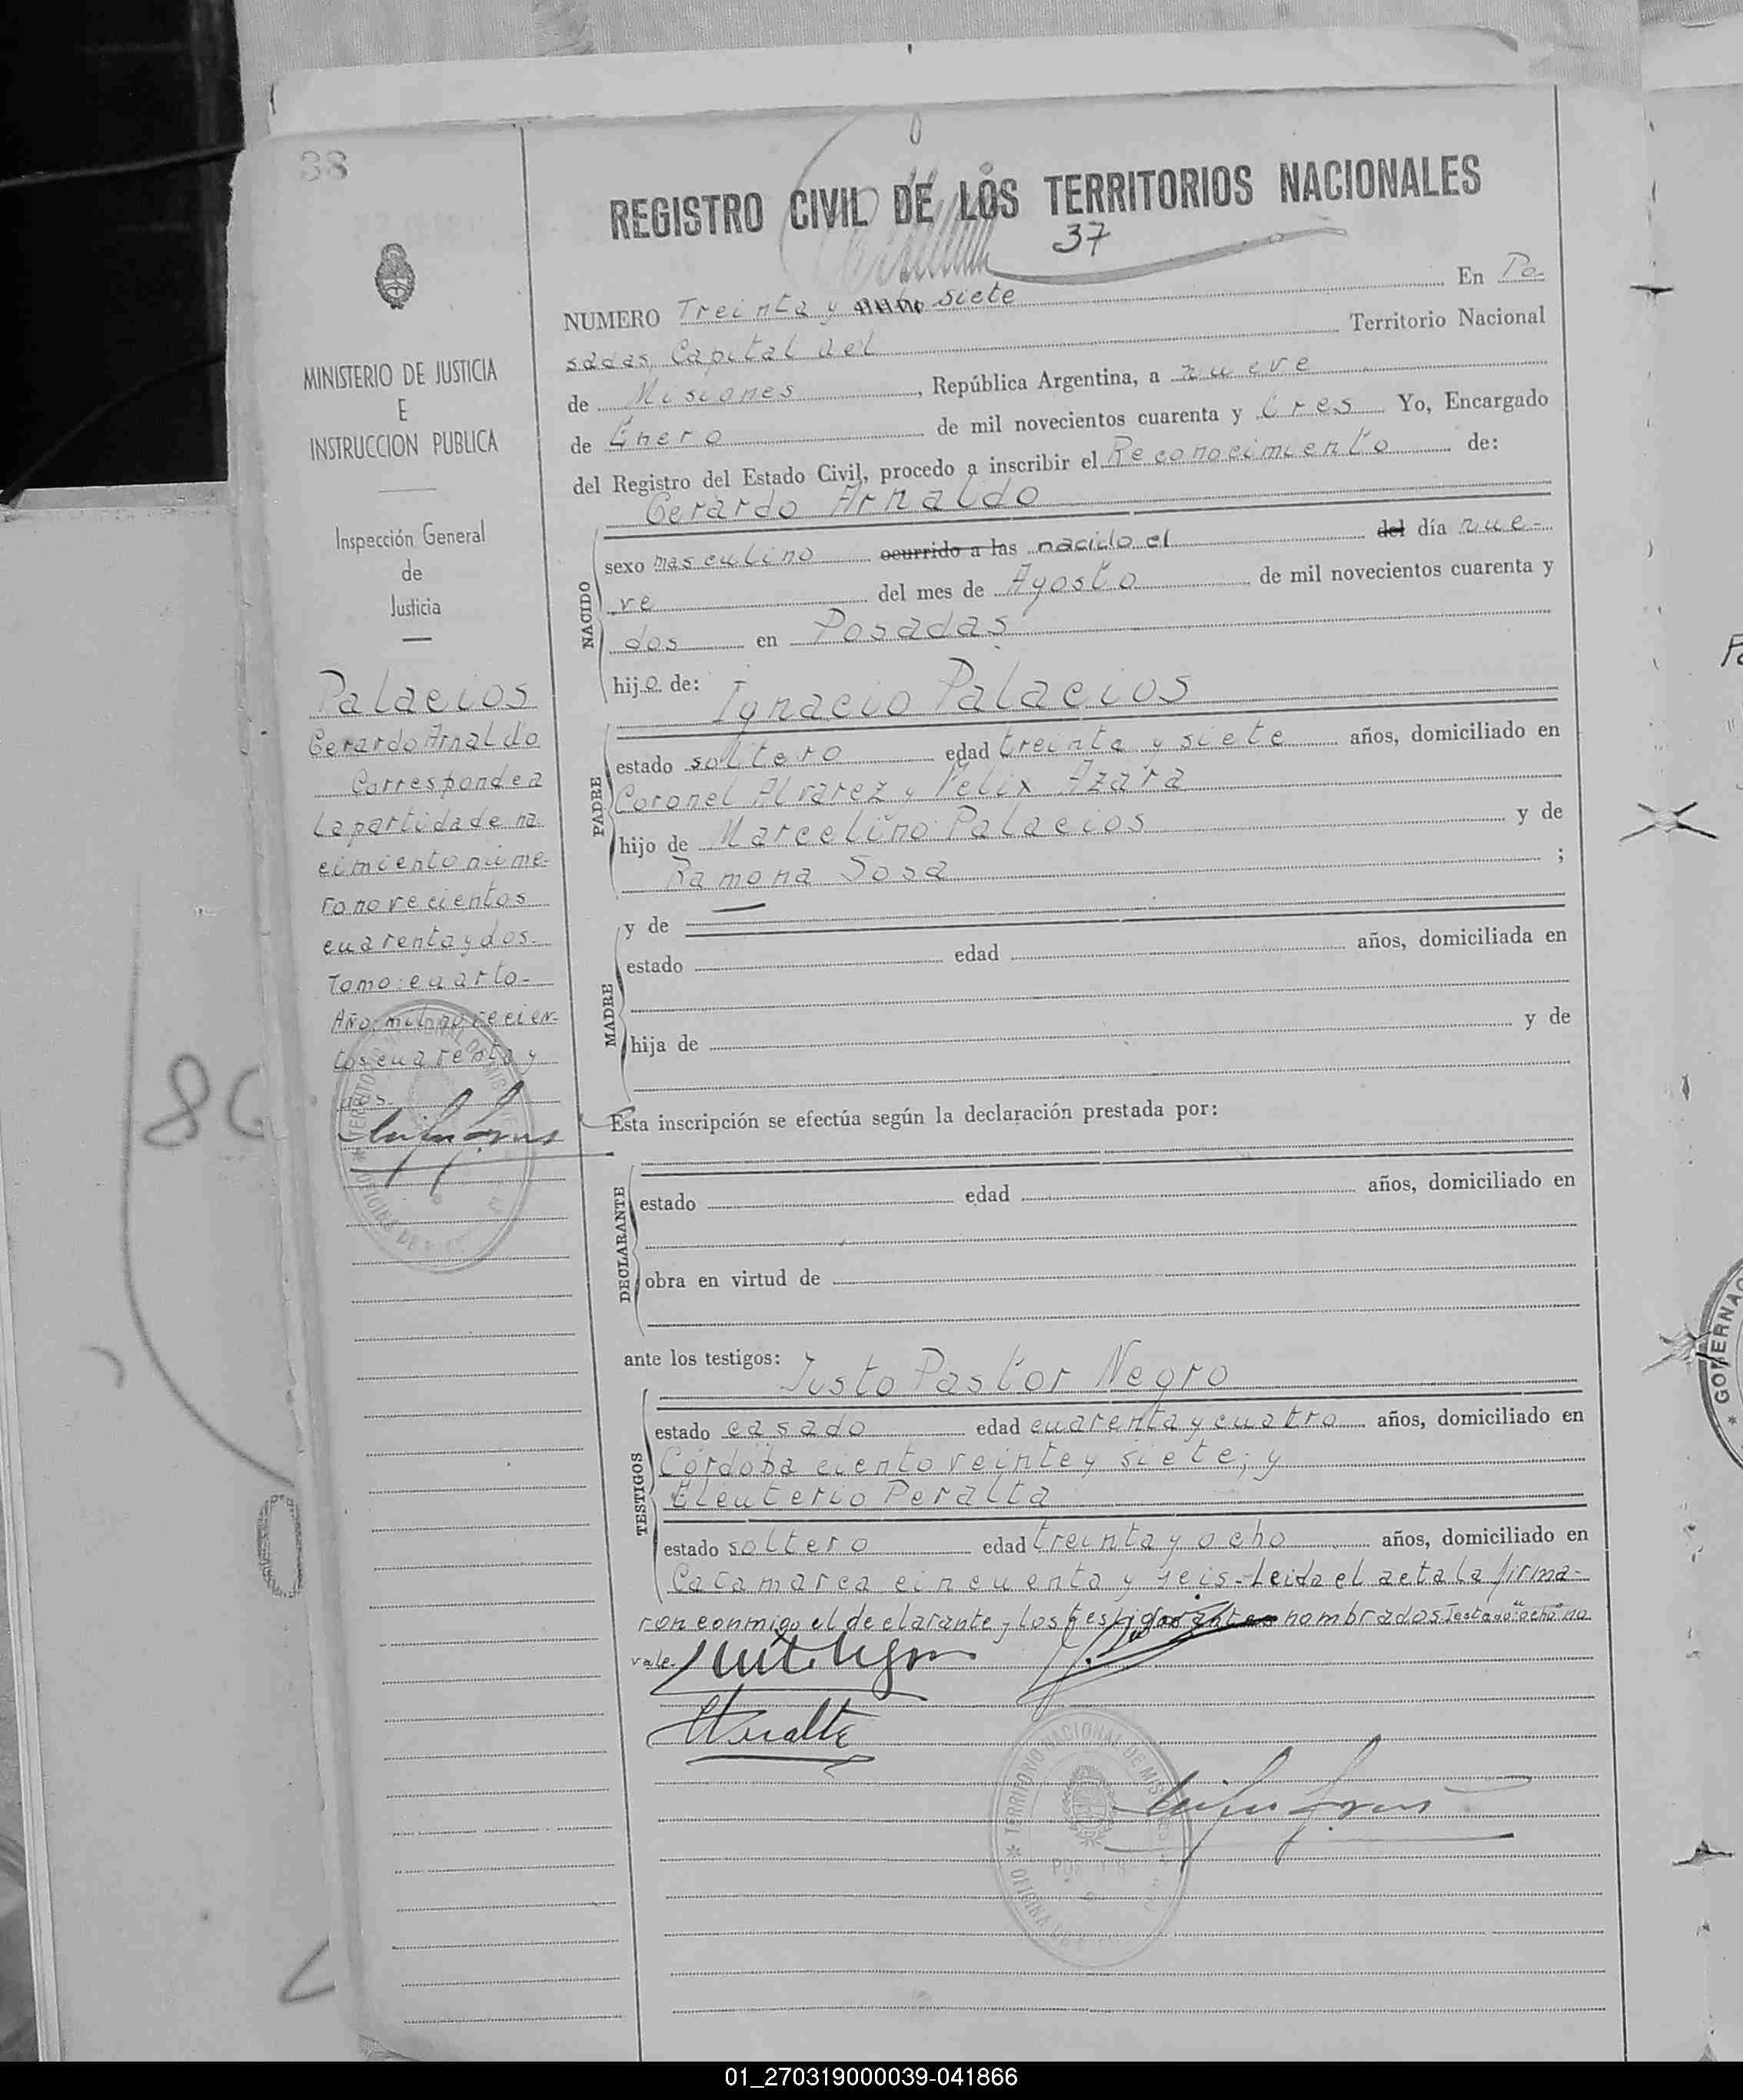 38
REGISTRO CIVIL DE LOS TERRITORIOS NACIONALES
37
MINISTERIO DE JUSTICIA
E
INSTRUCCION PUBLICA
Inspección General
de
Justicia
Palacios
Gerardo Arnaldo
Corresponde a
la partida de na
cimiento núme-
ro novecientos
cuarenta y dos.
Tomo: cuarto-
Año: mil novecien-
tos cuarenta y
dos.
86
NUMERO Treinta y ocho siete En Po-
sadas, Capital del Territorio Nacional
de Misiones, República Argentina, a nueve
de Enero de mil novecientos cuarenta y tres Yo, Encargado
del Registro del Estado Civil, procedo a inscribir el Reconocimiento de:
Gerardo Arnaldo
NACIDO
sexo masculino ocurrido a las nacido el del día nue-
ve del mes de Agosto de mil novecientos cuarenta y
dos en Posadas
hijo de:
Ignacio Palacios
PADRE
estado soltero edad treinta y siete años, domiciliado en
Coronel Alvarez y Felix Azara
hijo de Marcelino Palacios y de
Ramona Sosa ;
y de —
MADRE
estado edad años, domiciliada en
hija de y de
Esta inscripción se efectúa según la declaración prestada por:
DECLARANTE
estado edad años, domiciliado en
obra en virtud de
ante los testigos: Justo Pastor Negro
TESTIGOS
estado casado edad cuarenta y cuatro años, domiciliado en
Córdoba ciento veinte y siete; y
Eleuterio Peralta
estado soltero edad treinta y ocho años, domiciliado en
Catamarca cincuenta y seis-Leida el acta la firma-
ron conmigo el declarante y los testigos antes nombrados Testado "ocho" no
vale-
TERRITORIO NACIONAL DE MIS
OFICINA
GOBERNAC
01_270319000039-041866